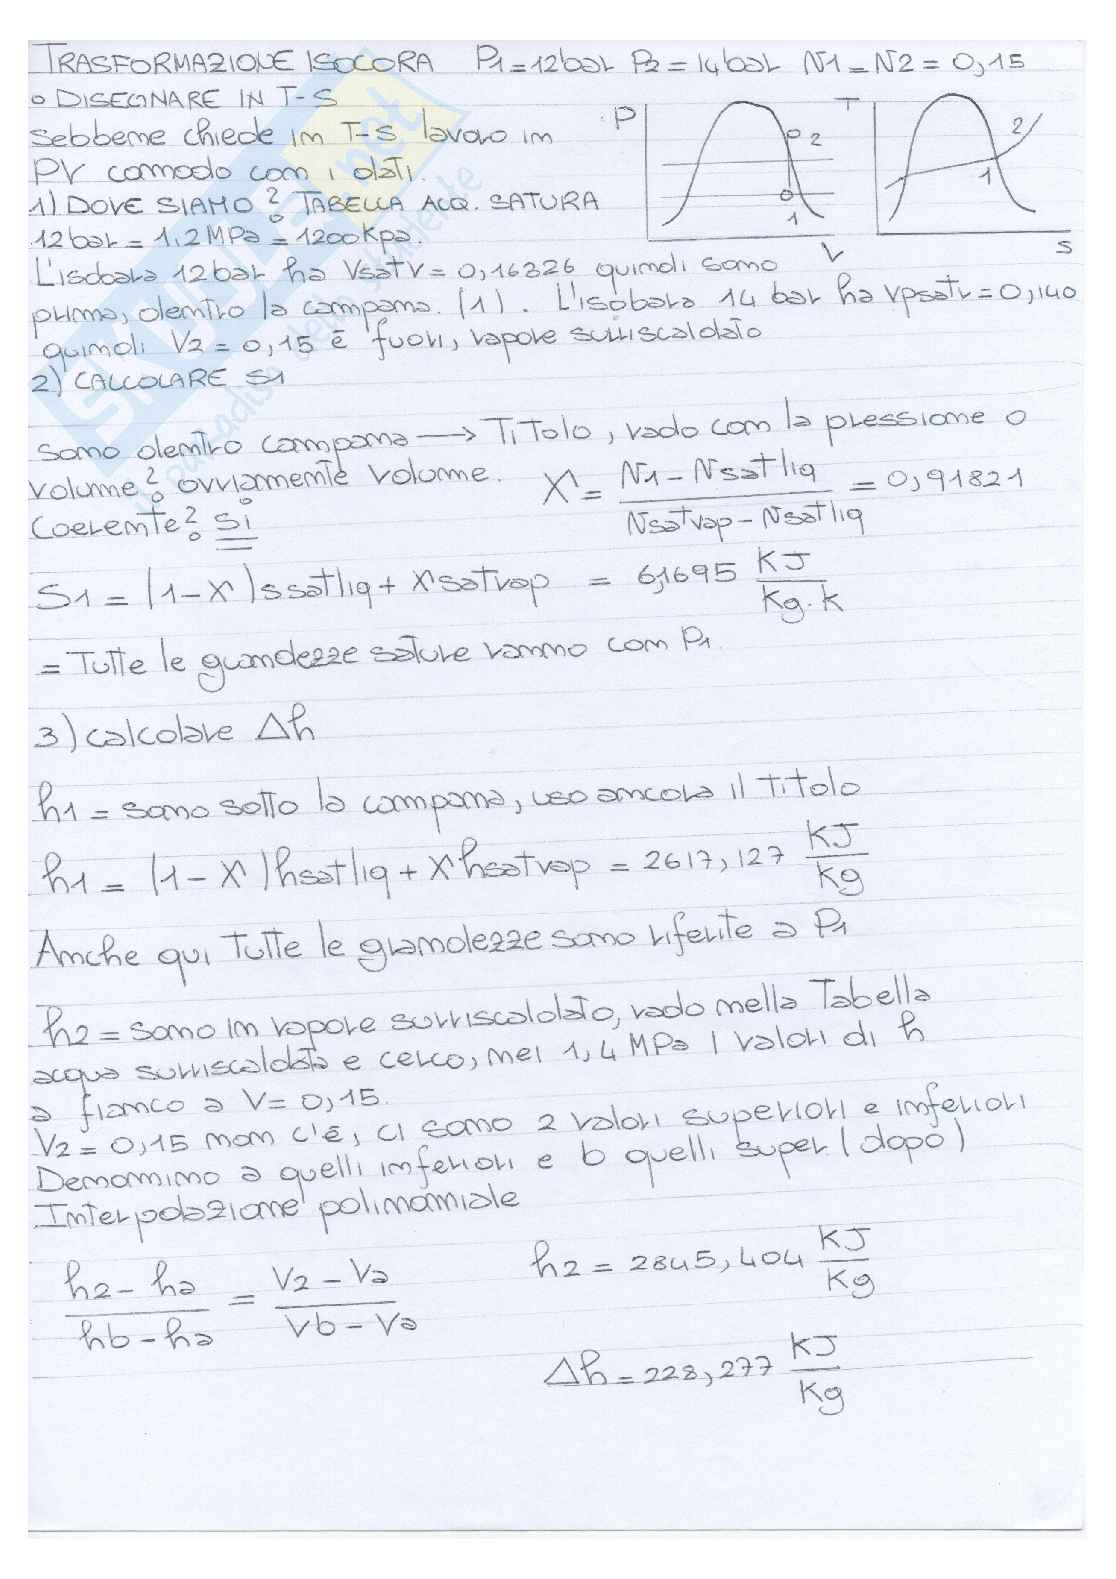 TRASFORMAZIONE ISOCORA P1=12bar P2=14bar N1=N2=0,15
o DISEGNARE IN T-S
Sebbene chiede in T-S lavoro in
PV comodo con i dati.
P
2
1
V
T
2
1
S
1) DOVE SIAMO? TABELLA ACQ. SATURA
12bar = 1,2MPa = 1200Kpa.
L'isobara 12bar ha Vsatv = 0,16326 quindi sono
prima, dentro la campana. (1). L'isobara 14 bar ha vpsatv = 0,140
quindi V2 = 0,15 è fuori, vapore surriscaldato
2) CALCOLARE S1
Sono dentro campana → Titolo, vado con la pressione o
volume? ovviamente volume. X = N1 - Nsatliq / Nsatvap - Nsatliq = 0,91821
Coerente? Si
S1 = (1-X)ssatliq + Xsatvap = 6,1695 KJ / Kg·k
= Tutte le grandezze sature vanno con P1.
3) calcolare Δh
h1 = sono sotto la campana, uso ancora il Titolo
h1 = (1-X)hsatliq + Xhsatvap = 2617,127 KJ / Kg
Anche qui Tutte le grandezze sono riferite a P1
h2 = sono in vapore surriscaldato, vado nella Tabella
acqua surriscaldata e cerco, nei 1,4 MPa i valori di h
a fianco a V = 0,15.
V2 = 0,15 non c'è, ci sono 2 valori superiori e inferiori
Denomino a quelli inferiori e b quelli super. (dopo)
Interpolazione polinomiale
h2 - ha / hb - ha = V2 - Va / Vb - Va
h2 = 2845,404 KJ / Kg
Δh = 228,277 KJ / Kg